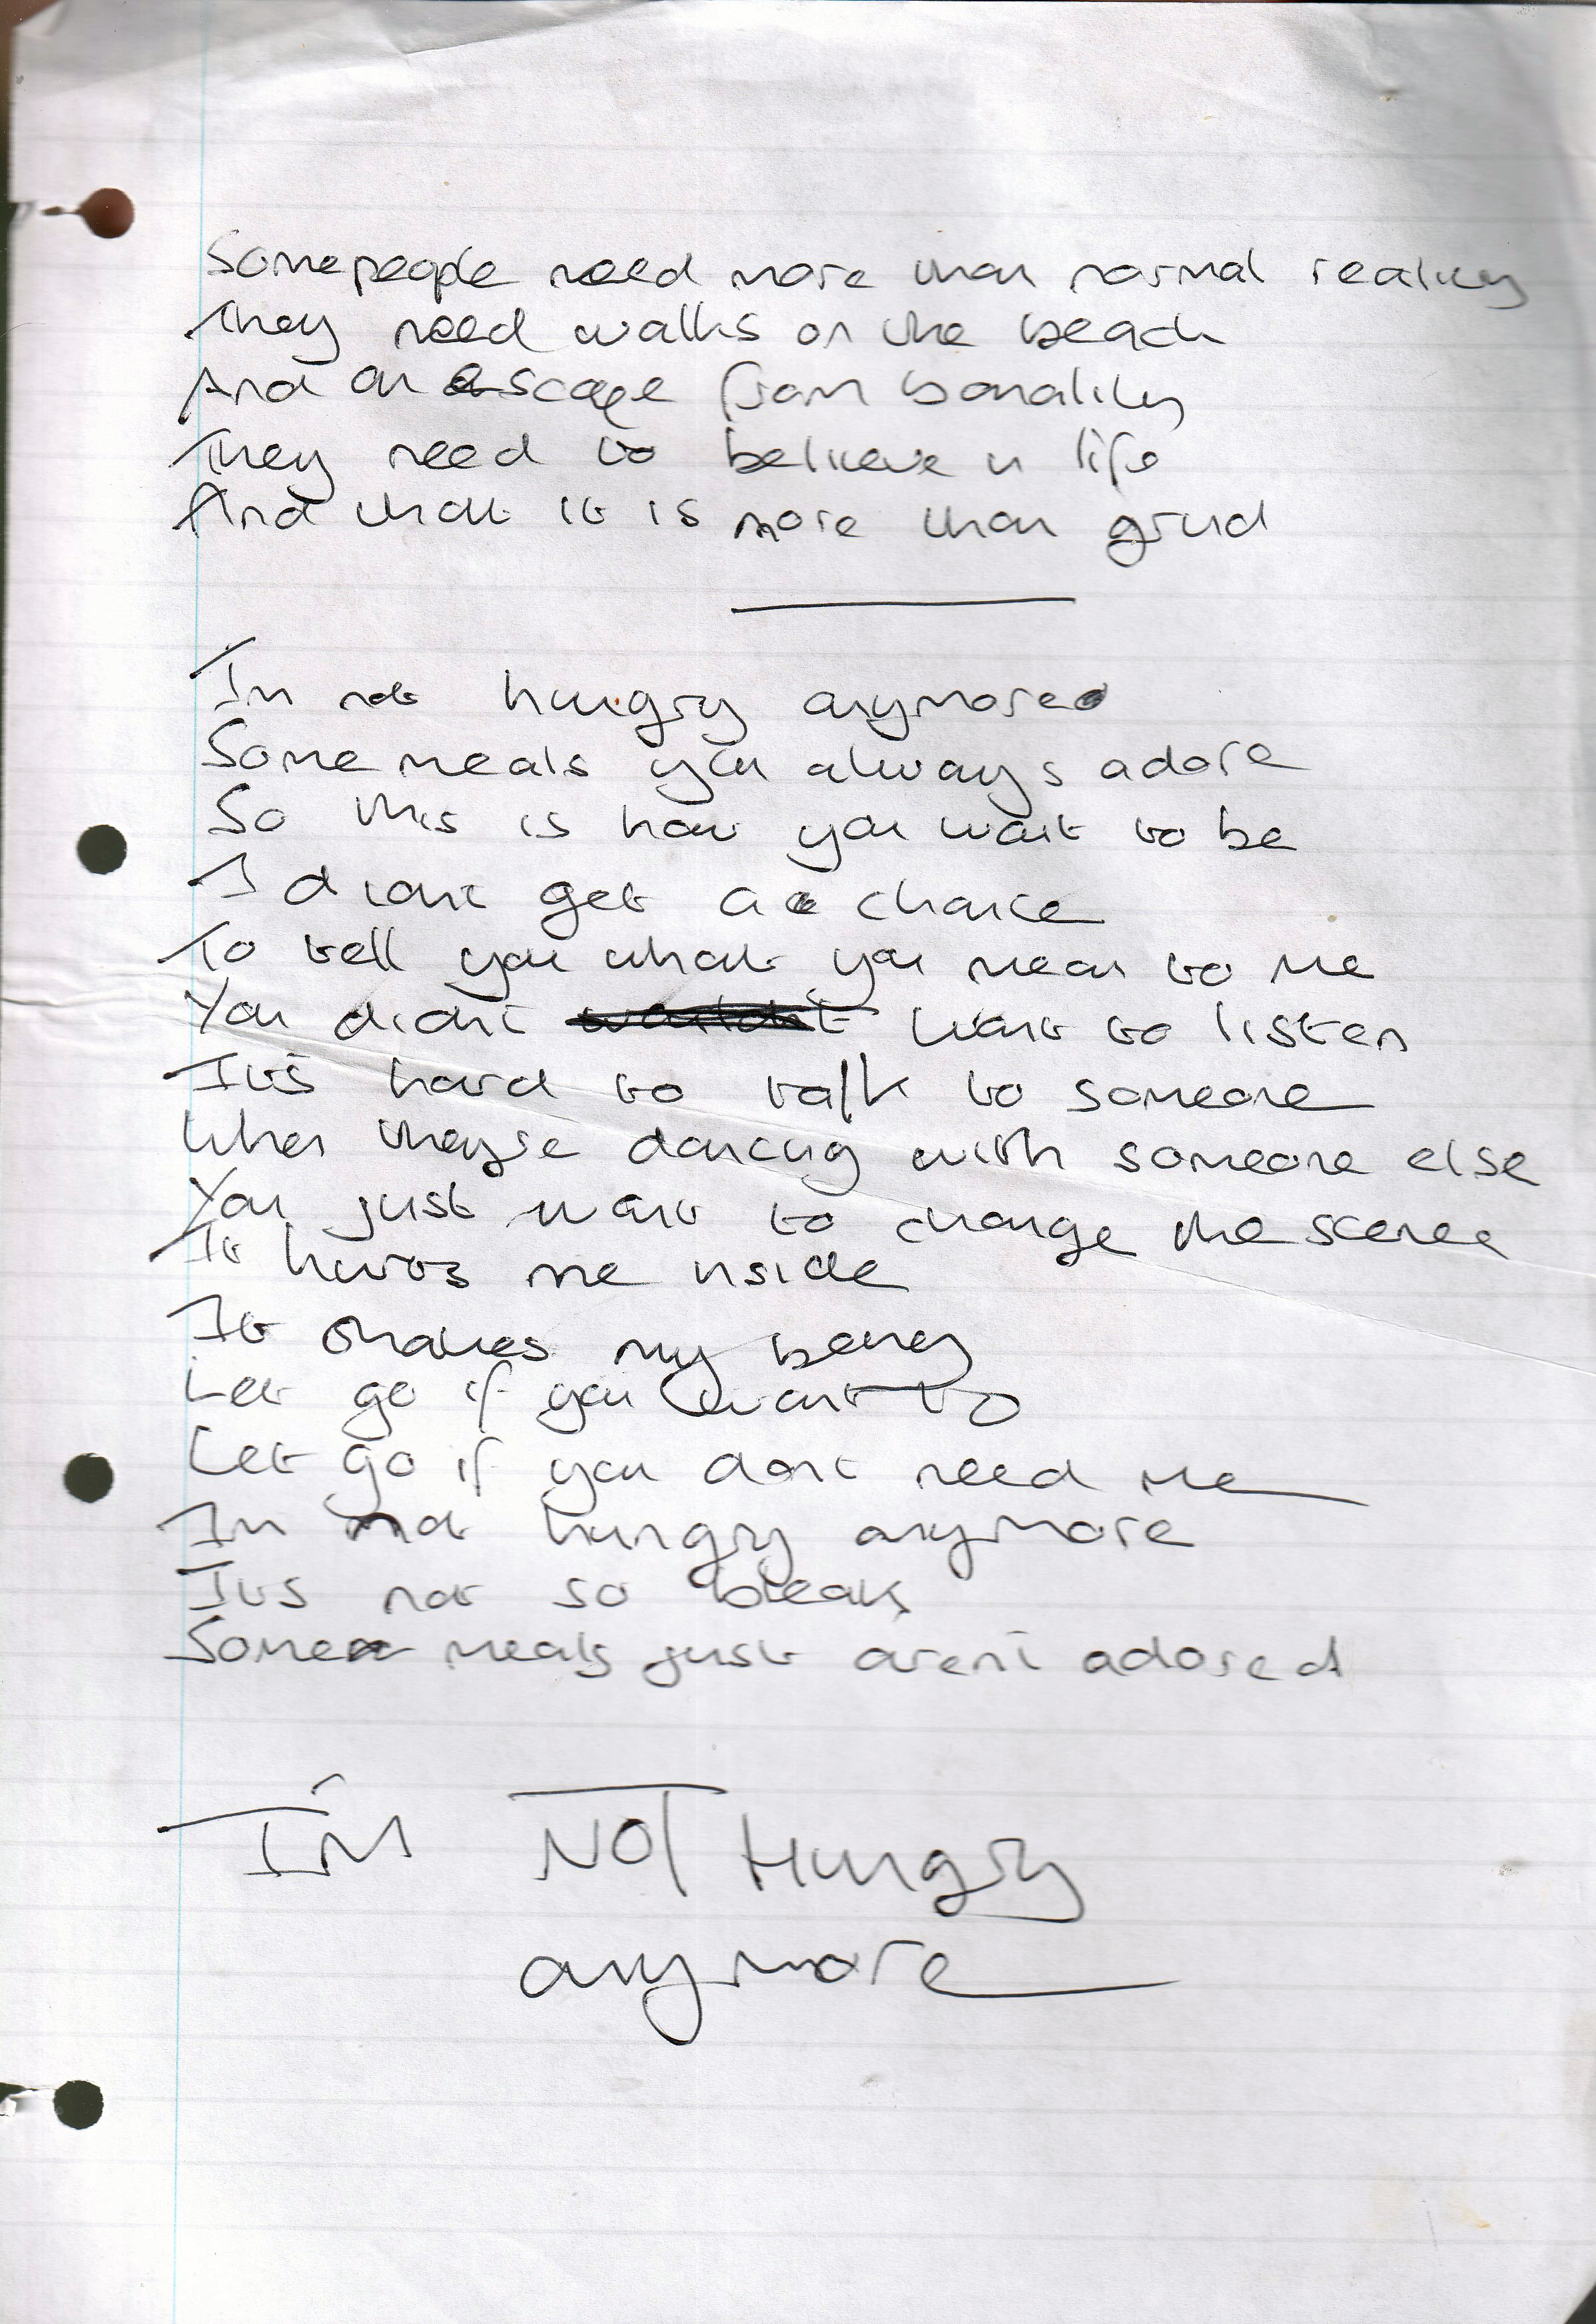 Some people need more than normal reality
They need walks on the beach
And an escape from banality
They need to believe in life
And that it is more than grind
Im not hungry anymore
Some meals you always adore
So this is how you want to be
I didnt get a choice
To tell you what you mean to me
You didnt want to listen
Its hard to talk to someone
When theyre dancing with someone else
You just want to change the scene
It hurts me inside
It shakes my being
Let go if you want to
Let go if you dont need me
Im not hungry anymore
Its not so bleak
Some meals just arent adored
I'M NOT Hungry
anymore